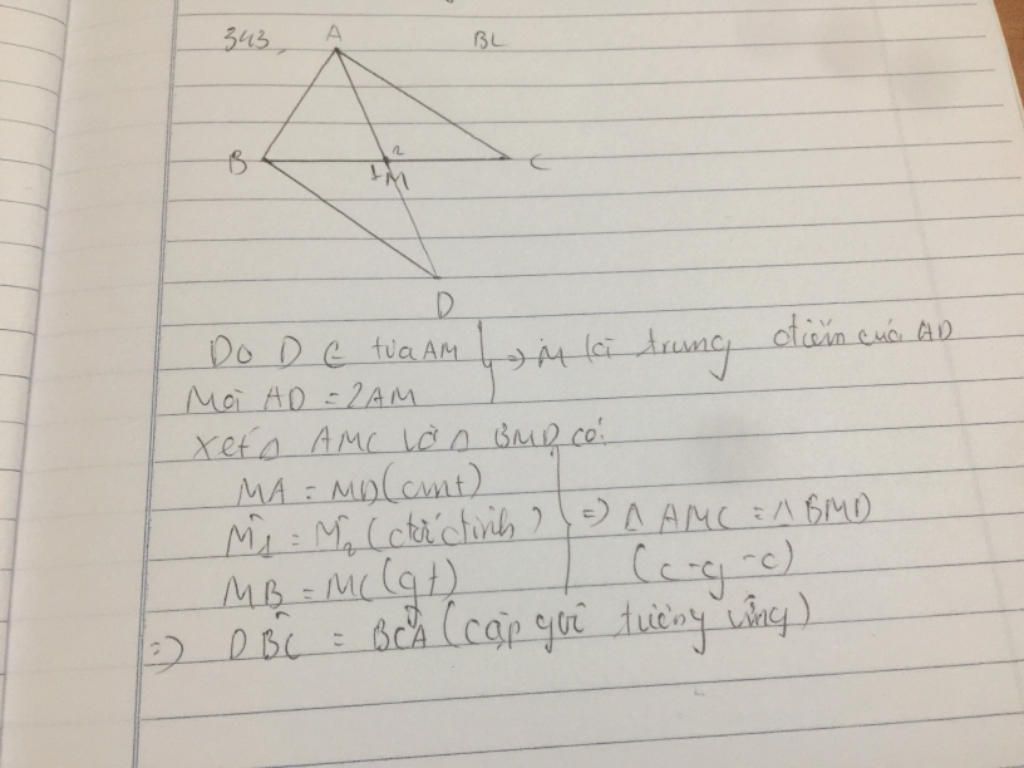 343,
A
BC
B
2
C
1
M
D
Do D ∈ tia AM } => M là trung điểm của AD
Mà AD = 2AM
Xét Δ AMC và Δ BMD có:
MA = MD (cmt)
M̂₁ = M̂₂ (đối đỉnh) } => Δ AMC = Δ BMD
MB = MC (gt) (c-g-c)
=> DB̂C = BĈA (cặp góc tương ứng)